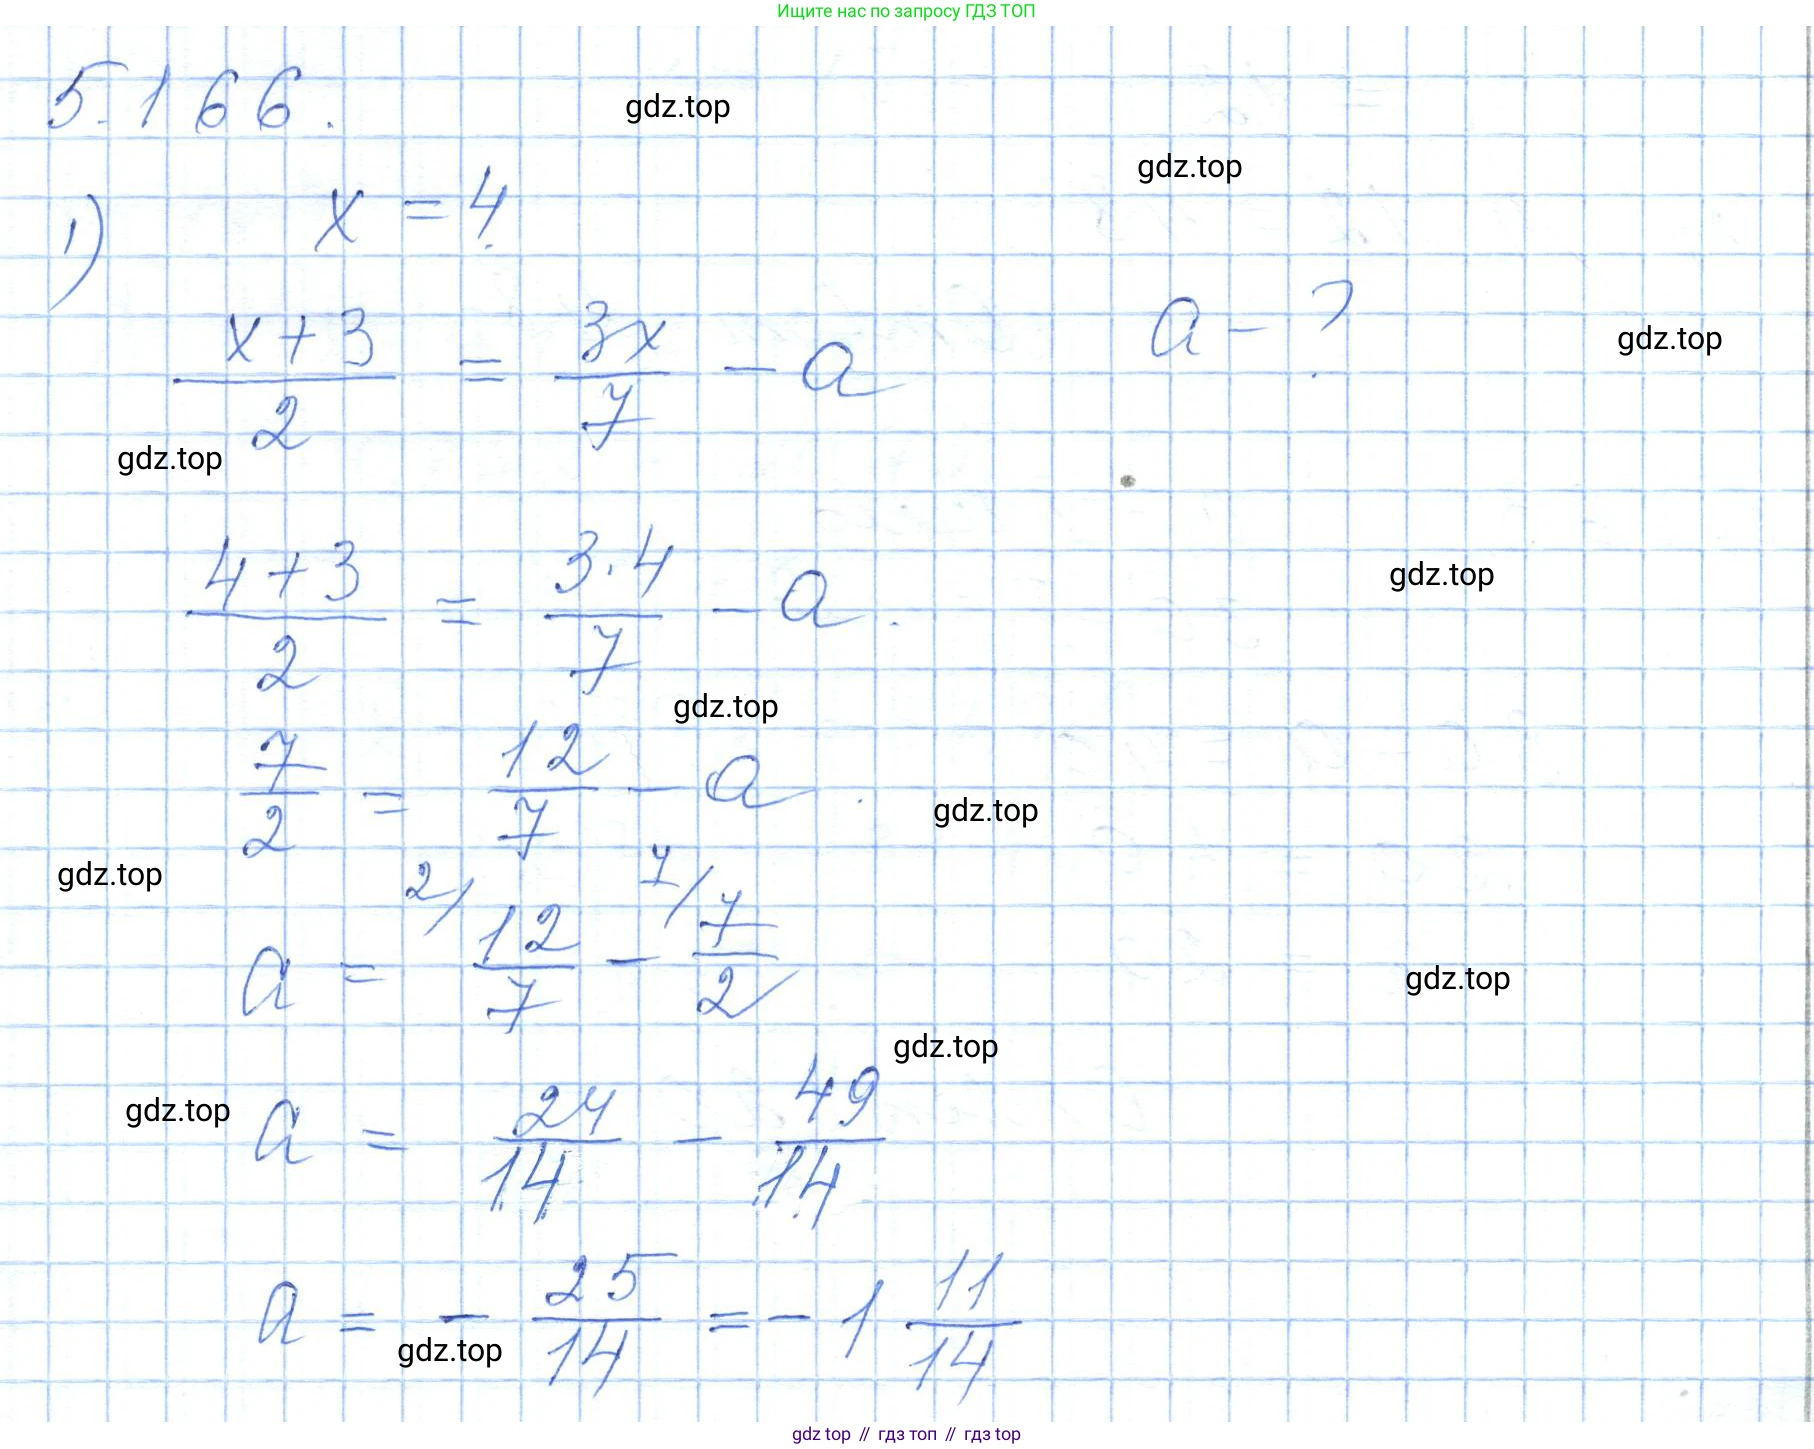 Ищите нас по запросу ГДЗ ТОП
5.166.
gdz.top
gdz.top
1) x = 4
(x + 3)/2 = 3x/7 - a
a - ?
gdz.top
gdz.top
(4 + 3)/2 = (3 · 4)/7 - a
gdz.top
gdz.top
7/2 = 12/7 - a
gdz.top
gdz.top
a = 2/ 12/7 - 7/ 7/2
gdz.top
gdz.top
a = 24/14 - 49/14
gdz.top
a = - 25/14 = - 1 11/14
gdz.top
gdz top // гдз топ // гдз top